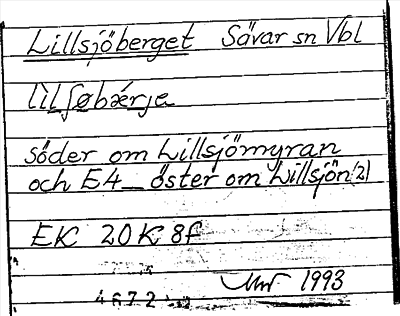 Lillsjöberget Sävar sn Vbl
lìlʃøbǽrje
söder om Lillsjömyran
och E4 – öster om Lillsjön (2)
EK 20K 8f
1993
4672